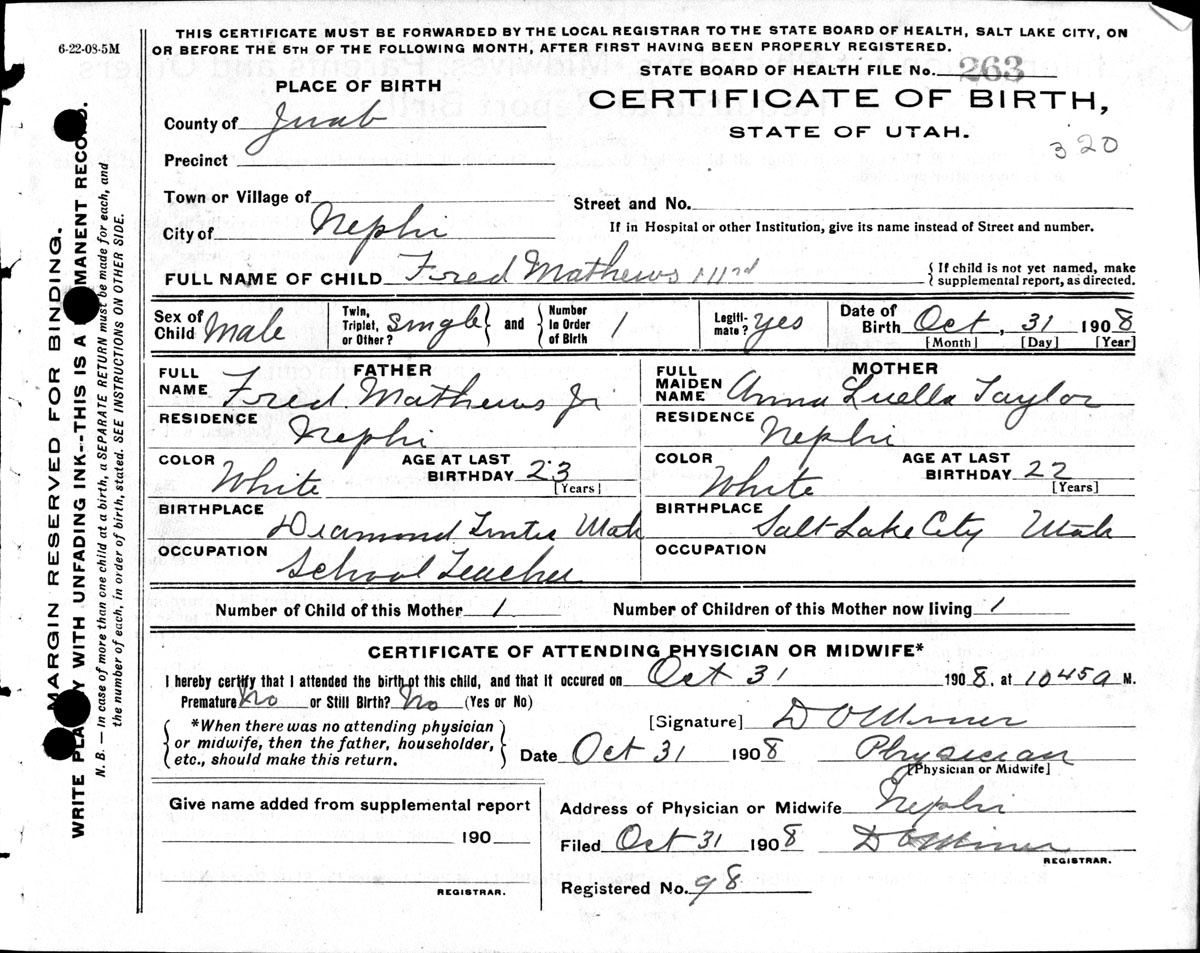 6-22-08-5M
THIS CERTIFICATE MUST BE FORWARDED BY THE LOCAL REGISTRAR TO THE STATE BOARD OF HEALTH, SALT LAKE CITY, ON
OR BEFORE THE 5TH OF THE FOLLOWING MONTH, AFTER FIRST HAVING BEEN PROPERLY REGISTERED.
STATE BOARD OF HEALTH FILE No. 263
PLACE OF BIRTH
CERTIFICATE OF BIRTH,
STATE OF UTAH.
320
County of Juab
Precinct
Town or Village of
Street and No.
City of Nephi
If in Hospital or other Institution, give its name instead of Street and number.
FULL NAME OF CHILD Fred Mathews IIIrd
{ If child is not yet named, make
supplemental report, as directed.
Sex of Child Male
Twin, Triplet, or Other? Single } and { Number In Order of Birth 1
Legiti-mate? yes
Date of Birth Oct, 31 1908
[Month] [Day] [Year]
FATHER
FULL NAME Fred Mathews Jr
RESIDENCE Nephi
COLOR White AGE AT LAST BIRTHDAY 23
[Years]
BIRTHPLACE Diamond Tintic Utah
OCCUPATION School Teacher
MOTHER
FULL MAIDEN NAME Anna Luella Taylor
RESIDENCE Nephi
COLOR White AGE AT LAST BIRTHDAY 22
[Years]
BIRTHPLACE Salt Lake City Utah
OCCUPATION
Number of Child of this Mother 1 Number of Children of this Mother now living 1
CERTIFICATE OF ATTENDING PHYSICIAN OR MIDWIFE*
I hereby certify that I attended the birth of this child, and that it occured on Oct 31 1908, at 1045 a M.
Premature No or Still Birth? No (Yes or No)
*When there was no attending physician
or midwife, then the father, householder,
etc., should make this return.
[Signature] D O Miner
Date Oct 31 1908 Physician
[Physician or Midwife]
Give name added from supplemental report
190
REGISTRAR.
Address of Physician or Midwife Nephi
Filed Oct 31 1908 D O Miner
REGISTRAR.
Registered No. 98
MARGIN RESERVED FOR BINDING.
WRITE PLA Y WITH UNFADING INK--THIS IS A MANENT RECO D.
N. B. — In case of more than one child at a birth, a SEPARATE RETURN must be made for each, and
the number of each, in order of birth, stated. SEE INSTRUCTIONS ON OTHER SIDE.